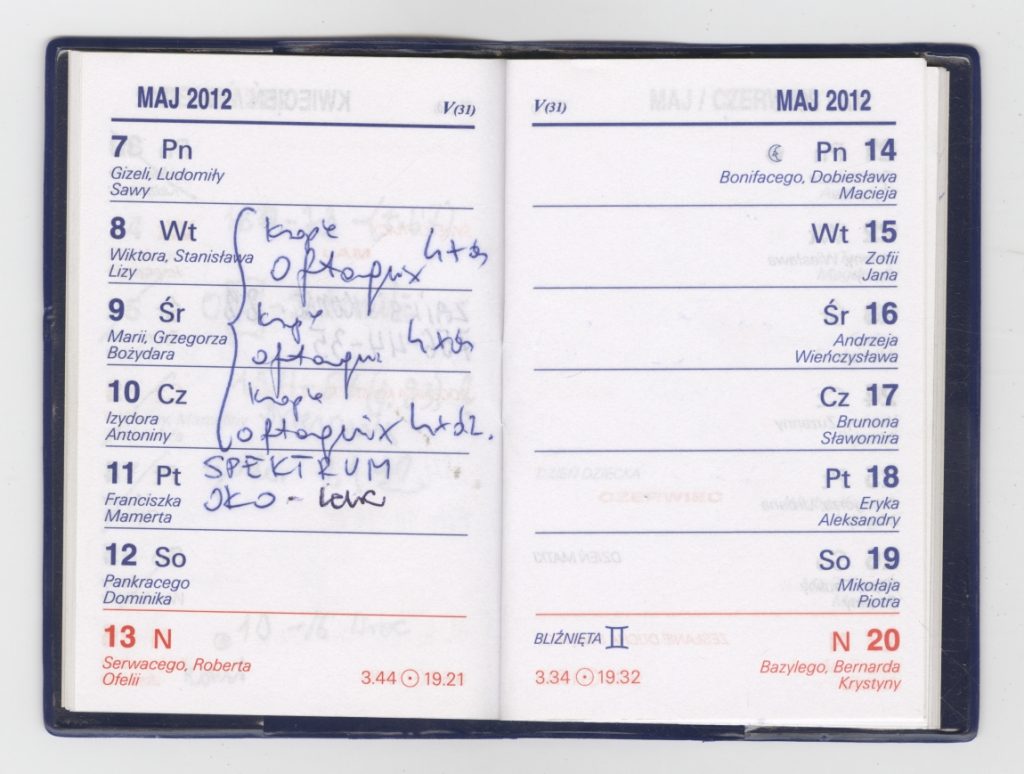 MAJ 2012
V(31)
7 Pn
Gizeli, Ludomiły
Sawy
8 Wt
Wiktora, Stanisława
Lizy
krople
Oftaquix 4xdz
9 Śr
Marii, Grzegorza
Bożydara
krople
oftaqui 4xdz
10 Cz
Izydora
Antoniny
krople
oftaquix 4xdz.
11 Pt
Franciszka
Mamerta
SPEKTRUM
OKO - lewe
12 So
Pankracego
Dominika
13 N
Serwacego, Roberta
Ofelii
3.44 19.21
V(31)
MAJ 2012
Pn 14
Bonifacego, Dobiesława
Macieja
Wt 15
Zofii
Jana
Śr 16
Andrzeja
Wieńczysława
Cz 17
Brunona
Sławomira
Pt 18
Eryka
Aleksandry
So 19
Mikołaja
Piotra
BLIŹNIĘTA
N 20
Bazylego, Bernarda
Krystyny
3.34 19.32